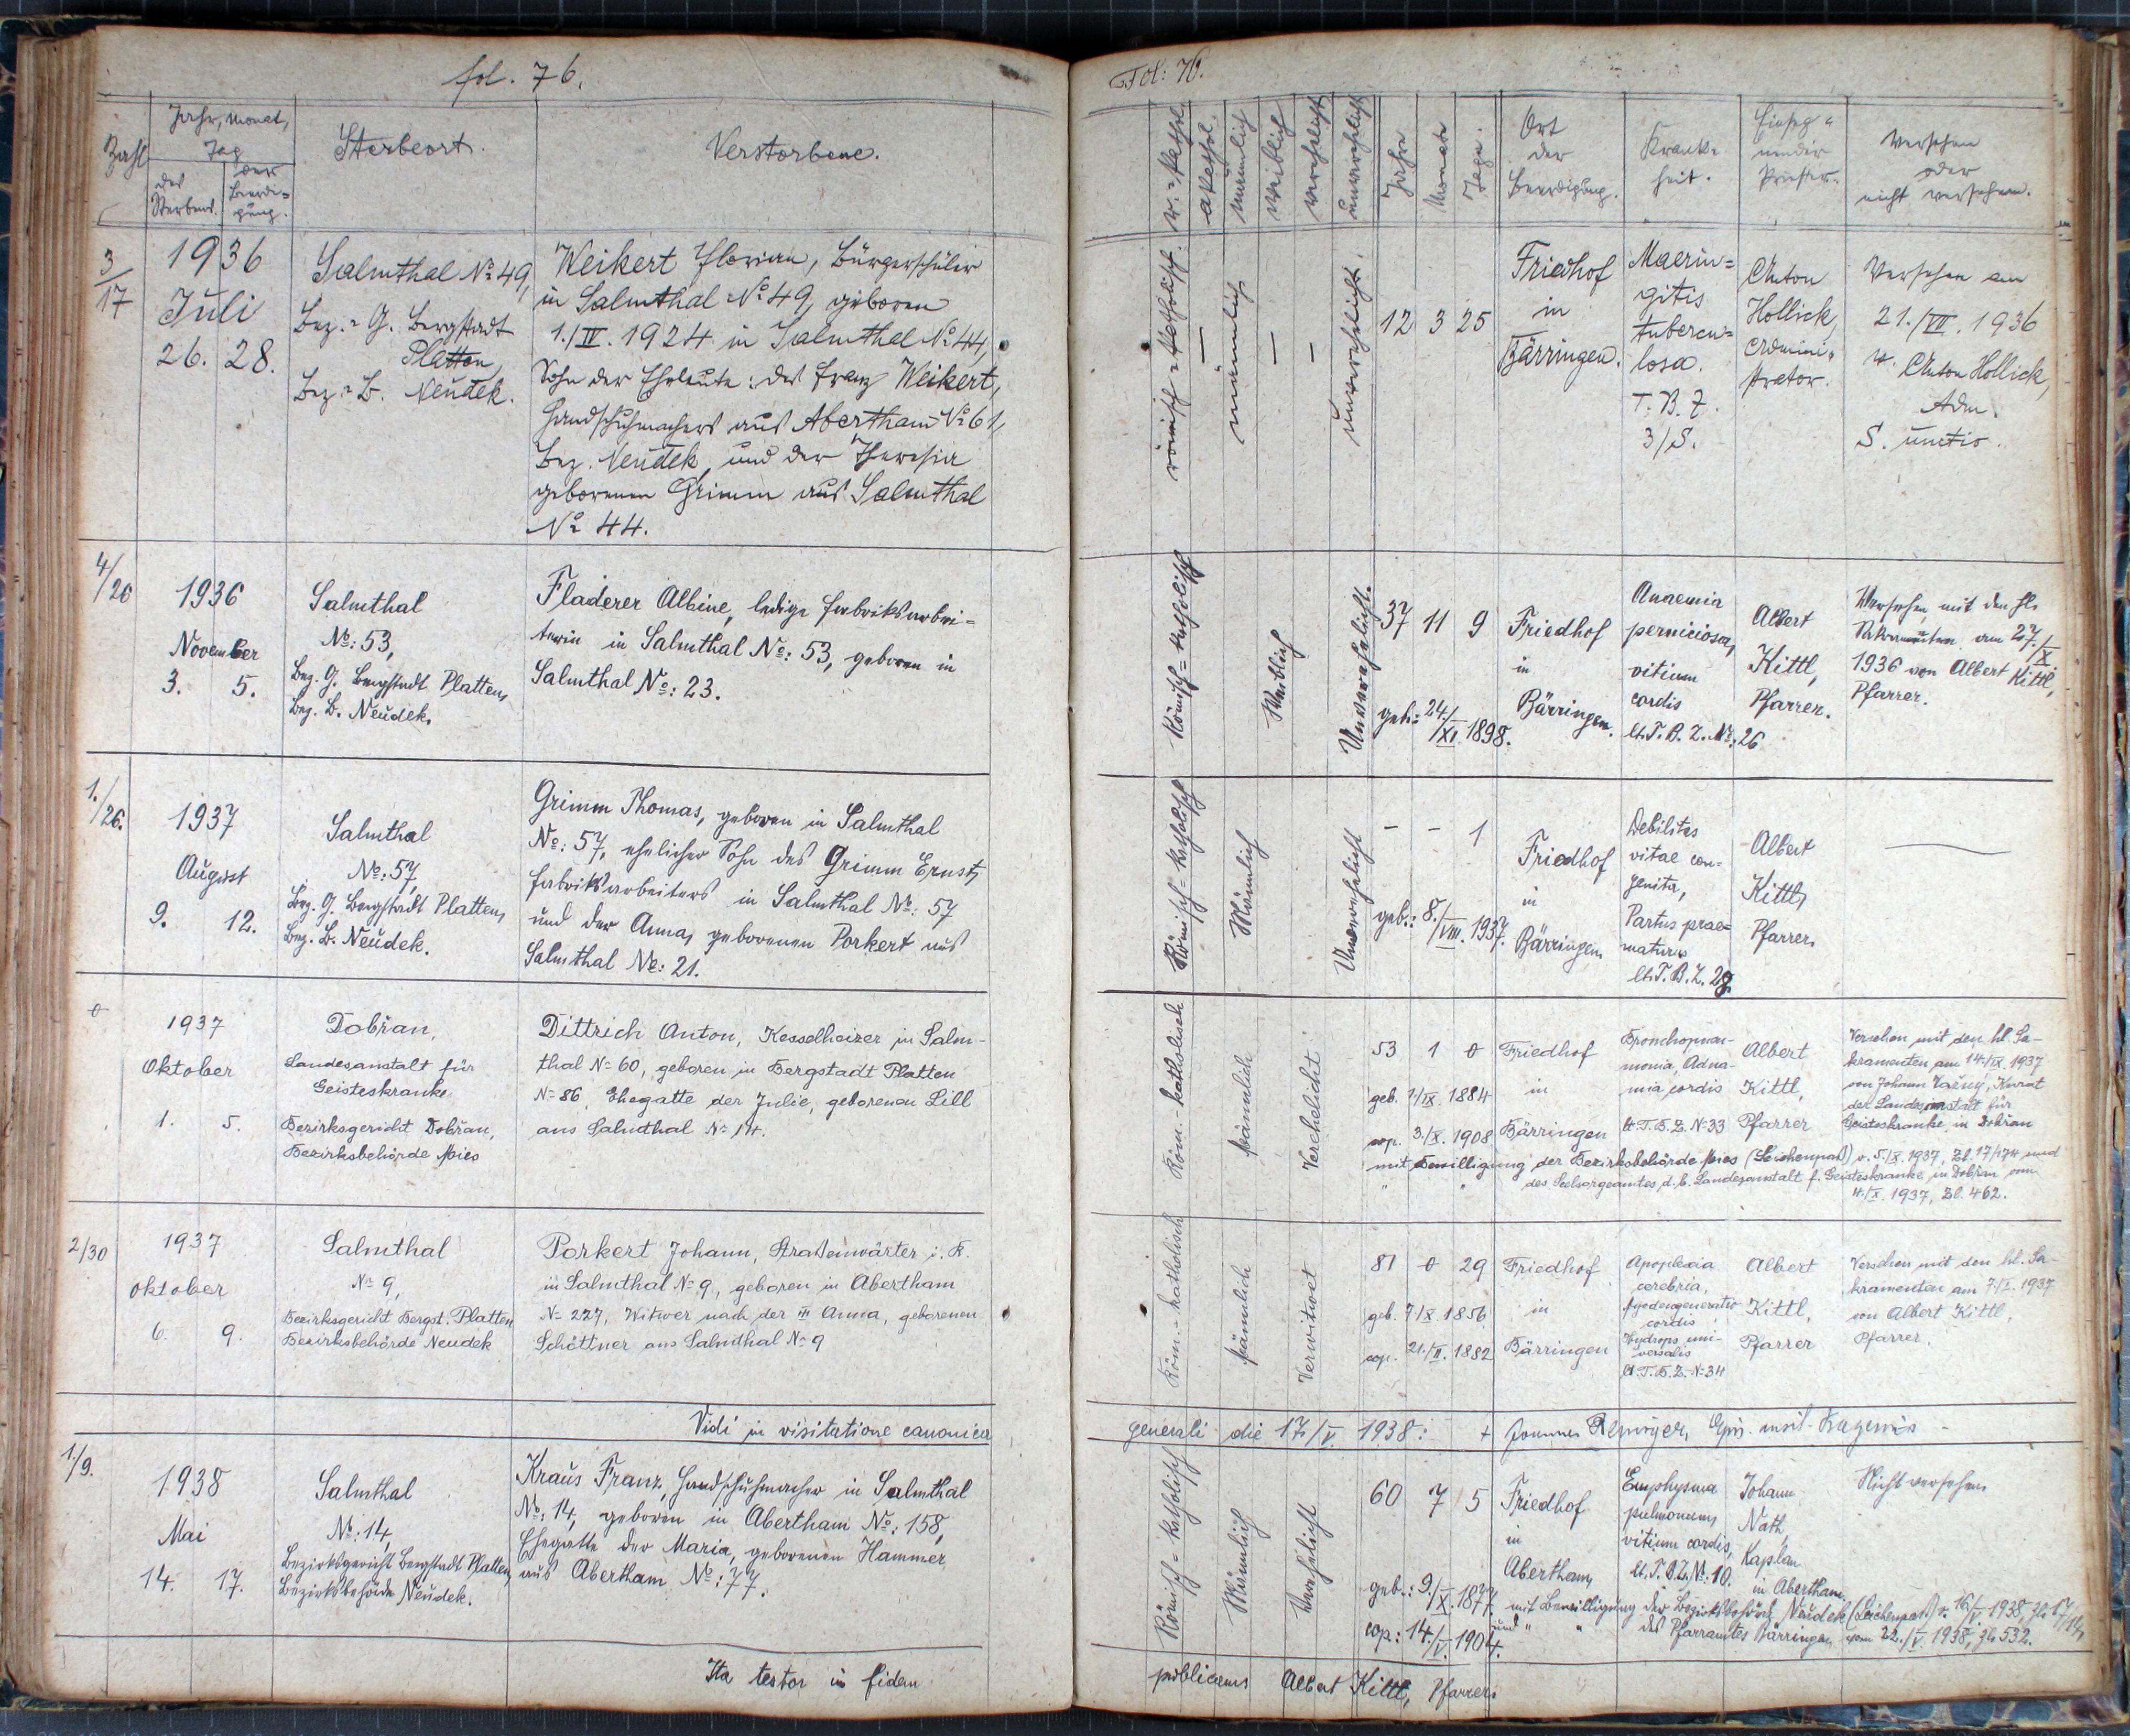 fol. 76.
Zahl
Jahr, Monat,
Tag
des Sterbens.
der Beerdi=
gung.
Sterbeort.
Verstorbene.
3/17
1936
Juli
26. 28.
Salmthal No 49,
Bez.=G. Bergstadt
Platten,
Bez.=B. Neudek.
Weikert Florian, Bürgerschüler
in Salmthal No 49, geboren
1./IV. 1924 in Salmthal No 44,
Sohn der Eheleute: des Franz Weikert,
Handschuhmachers aus Abertham No 61,
Bez. Neudek, und der Theresia
geborenen Grimm aus Salmthal
No 44.
4/26
1936
November
3. 5.
Salmthal
No: 53,
Bez. G. Bergstadt Platten,
Bez. B. Neudek.
Fladerer Albine, ledige Fabriksarbei=
terin in Salmthal No: 53, geboren in
Salmthal No: 23.
1./26.
1937
August
9. 12.
Salmthal
No: 57,
Bez. G. Bergstadt Platten,
Bez. B. Neudek.
Grimm Thomas, geboren in Salmthal
No: 57, ehelicher Sohn des Grimm Ernst,
Fabriksarbeiters in Salmthal No: 57
und der Anna, geborenen Porkert aus
Salmthal No: 21.
0
1937
Oktober
1. 5.
Dobřan,
Landesanstalt für
Geisteskranke
Bezirksgericht Dobřan,
Bezirksbehörde Mies
Dittrich Anton, Kesselheizer in Salm-
thal No 60, geboren in Bergstadt Platten
No 86, Ehegatte der Julie, geborenen Lill
aus Salmthal No 14.
2/30
1937
Oktober
6. 9.
Salmthal
No 9,
Bezirksgericht Bergst. Platten
Bezirksbehörde Neudek
Porkert Johann, Straßenwärter i. R.
in Salmthal No 9, geboren in Abertham
No 227, Witwer nach der III Anna, geborenen
Schöttner aus Salmthal No 9
Vidi in visitatione canonica
1./9.
1938
Mai
14. 17.
Salmthal
No: 14,
Bezirksgericht Bergstadt Platten,
Bezirksbehörde Neudek.
Kraus Franz, Handschuhmacher in Salmthal
No: 14, geboren in Abertham No: 158,
Ehegatte der Maria, geborenen Hammer
aus Abertham No: 77.
Ita testor in fidem
Fol: 76.
r.=kathol.
akathol.
männlich
weiblich
verehelicht
unverehelicht
Jahre
Monate
Tage.
Ort
der
Beerdigung.
Krank=
heit.
Einseg=
nender
Priester.
Versehen
oder
nicht versehen.
römisch=katholisch.
—
männlich
—
—
unverehelicht.
12 3 25
Friedhof
in
Bärringen.
Maenin=
gitis
tubercu=
losa.
T. B. Z.
3/S.
Anton
Hollick,
Admini=
strator.
Versehen am
21./VII. 1936
v. Anton Hollick,
Adm.
S. unctio.
Römisch=katholisch
Weiblich
Unverehelicht.
37 11 9
geb.: 24./XI. 1898.
Friedhof
in
Bärringen.
Anaemia
perniciosa,
vitium
cordis
lt. T. B. Z. No: 26
Albert
Kittl,
Pfarrer.
Versehen mit den hl.
Sakramenten am 27./X.
1936 von Albert Kittl,
Pfarrer.
Römisch=katholisch
Männlich
Unverehelicht
- - 1
geb.: 8./VIII. 1937.
Friedhof
in
Bärringen,
Debilitas
vitae con=
genita,
Partus prae=
maturus
lt. T. B. Z. 28.
Albert
Kittl,
Pfarrer.
—
Röm.-katholisch
Männlich
Verehelicht.
53 1 0
geb. 1/IX. 1884
cop. 3./X. 1908
Friedhof
in
Bärringen
Bronchopneu-
monia, Adna-
mia cordis
lt. T. B. Z. No 33
Albert
Kittl,
Pfarrer
Versehen mit den hl. Sa-
kramenten am 14./IX. 1937
von Johann Vačny, Kurat
der Landesanstalt für
Geisteskranke in Dobřan
mit Bewilligung der Bezirksbehörde Mies (Leichenpaß) v. 5./X. 1937, Zl. 17/174 und
" " des Seelsorgeamtes d. b. Landesanstalt f. Geisteskranke in Dobřan vom
4./X. 1937, Zl. 462.
Röm.-katholisch
Männlich
Verwitwet
81 0 29
geb. 7/IX 1856
cop. 21./II. 1882
Friedhof
in
Bärringen
Apoplexia
cerebria,
Myodegeneratio
cordis
Hydrops uni-
versalis
lt. T. B. Z. No 34
Albert
Kittl,
Pfarrer
Versehen mit den hl. Sa-
kramenten am 7./I. 1937
von Albert Kittl,
Pfarrer.
generali die 17/V. 1938: + Joannes Remiger, Epis.
Römisch=katholisch
Männlich
Verehelicht
60 7 5
geb.: 9./X. 1877.
cop.: 14./V. 1904.
Friedhof
in
Abertham,
Emphysema
pulmonum,
vitium cordis,
lt. T. B. Z. No: 10.
Johann
Nath,
Kaplan
in Abertham.
Nicht versehen
mit Bewilligung der Bezirksbehörde Neudek (Leichenpaß) v. 16./V. 1938, Zl. 17/14,
und " " des Pfarramtes Bärringen vom 22./V. 1938, Zl. 532.
publicam Albert Kittl, Pfarrer.